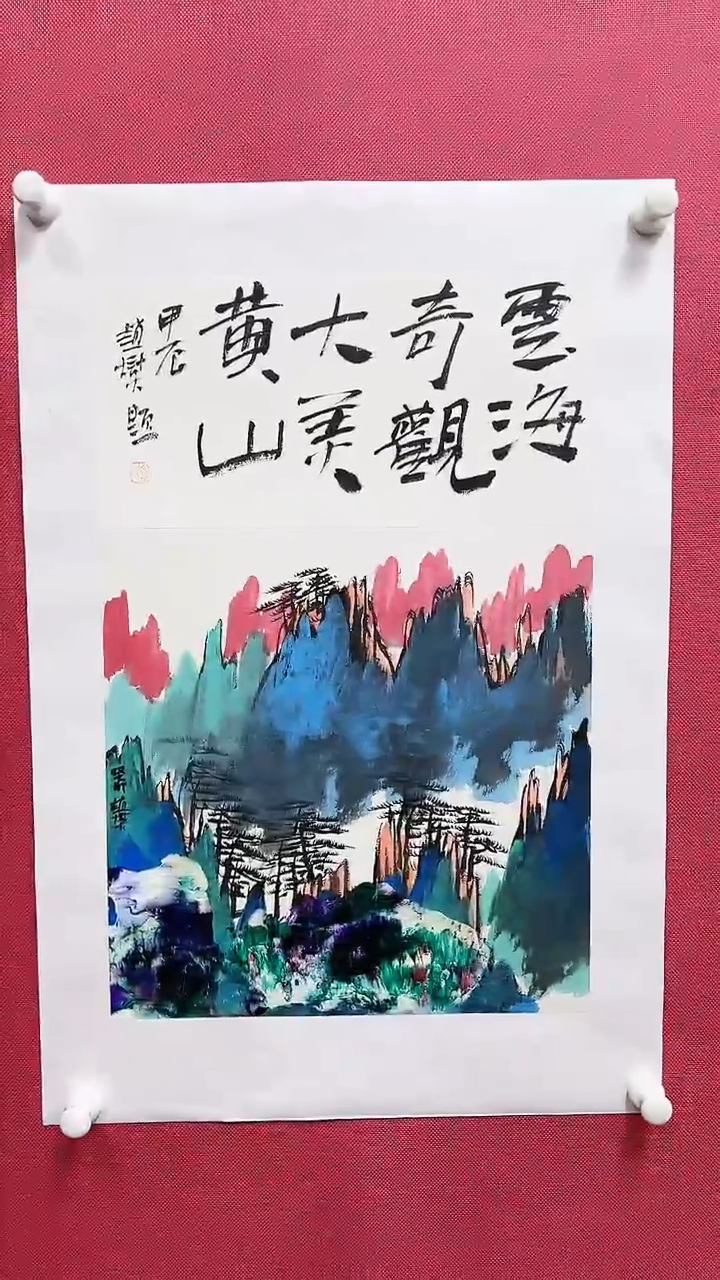 雲海
奇觀
大美
黄山
甲辰
趙 題
華